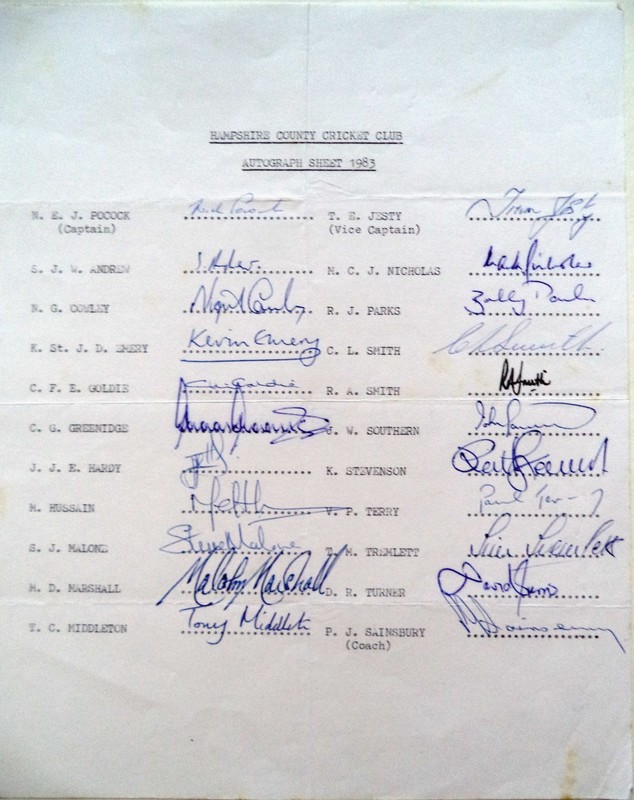 HAMPSHIRE COUNTY CRICKET CLUB
AUTOGRAPH SHEET 1983
N. E. J. POCOCK Nick Pocock T. E. JESTY Trevor Jesty
(Captain) (Vice Captain)
S. J. W. ANDREW M. C. J. NICHOLAS Mark Nicholas
N. G. COWLEY Nigel Cowley R. J. PARKS Bobby Parks
K. St. J. D. EMERY Kevin Emery C. L. SMITH C L Smith
C. F. E. GOLDIE Goldie R. A. SMITH RA Smith
C. G. GREENIDGE J. W. SOUTHERN John
J. J. E. HARDY K. STEVENSON
M. HUSSAIN V. P. TERRY Paul Terry
S. J. MALONE Steve Malone T. M. TREMLETT Tim Tremlett
M. D. MARSHALL Malcolm Marshall D. R. TURNER David Turner
T. C. MIDDLETON Tony Middleton P. J. SAINSBURY Sainsbury
(Coach)